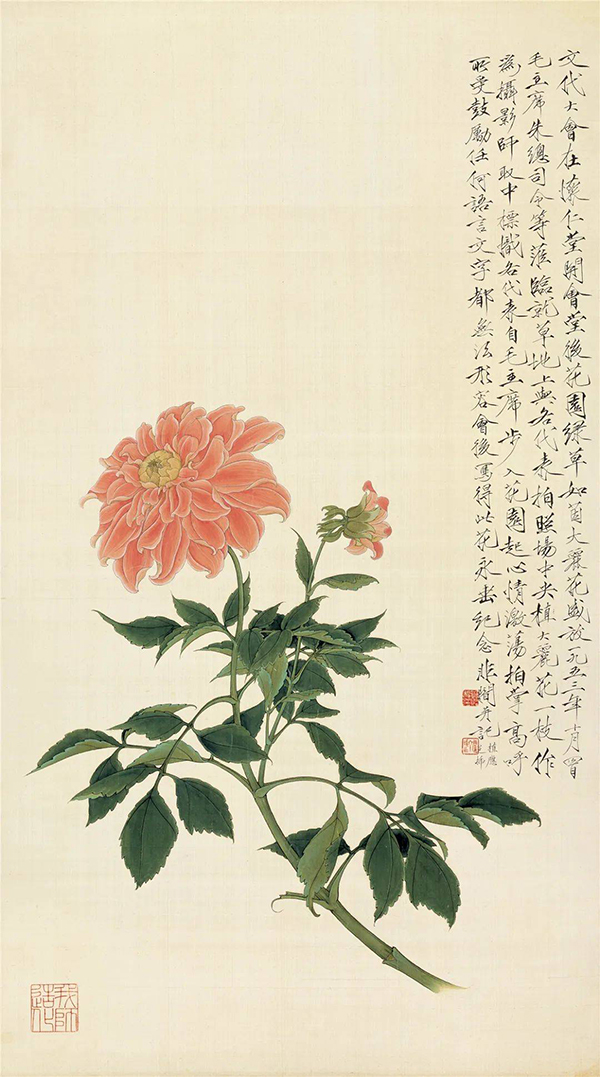 文代大會在懷仁堂開會堂後花園綠草如茵大麗花盛放一九五三年十月四日
毛主席朱總司令等蒞臨就草地上與各代表拍照場中央植大麗花一枝作
為攝影師取中標幟各代表自毛主席步入花園起心情激蕩拍掌高呼
所受鼓勵任何語言文字都無法形容會後寫得此花永垂紀念非闇并記
我師造化